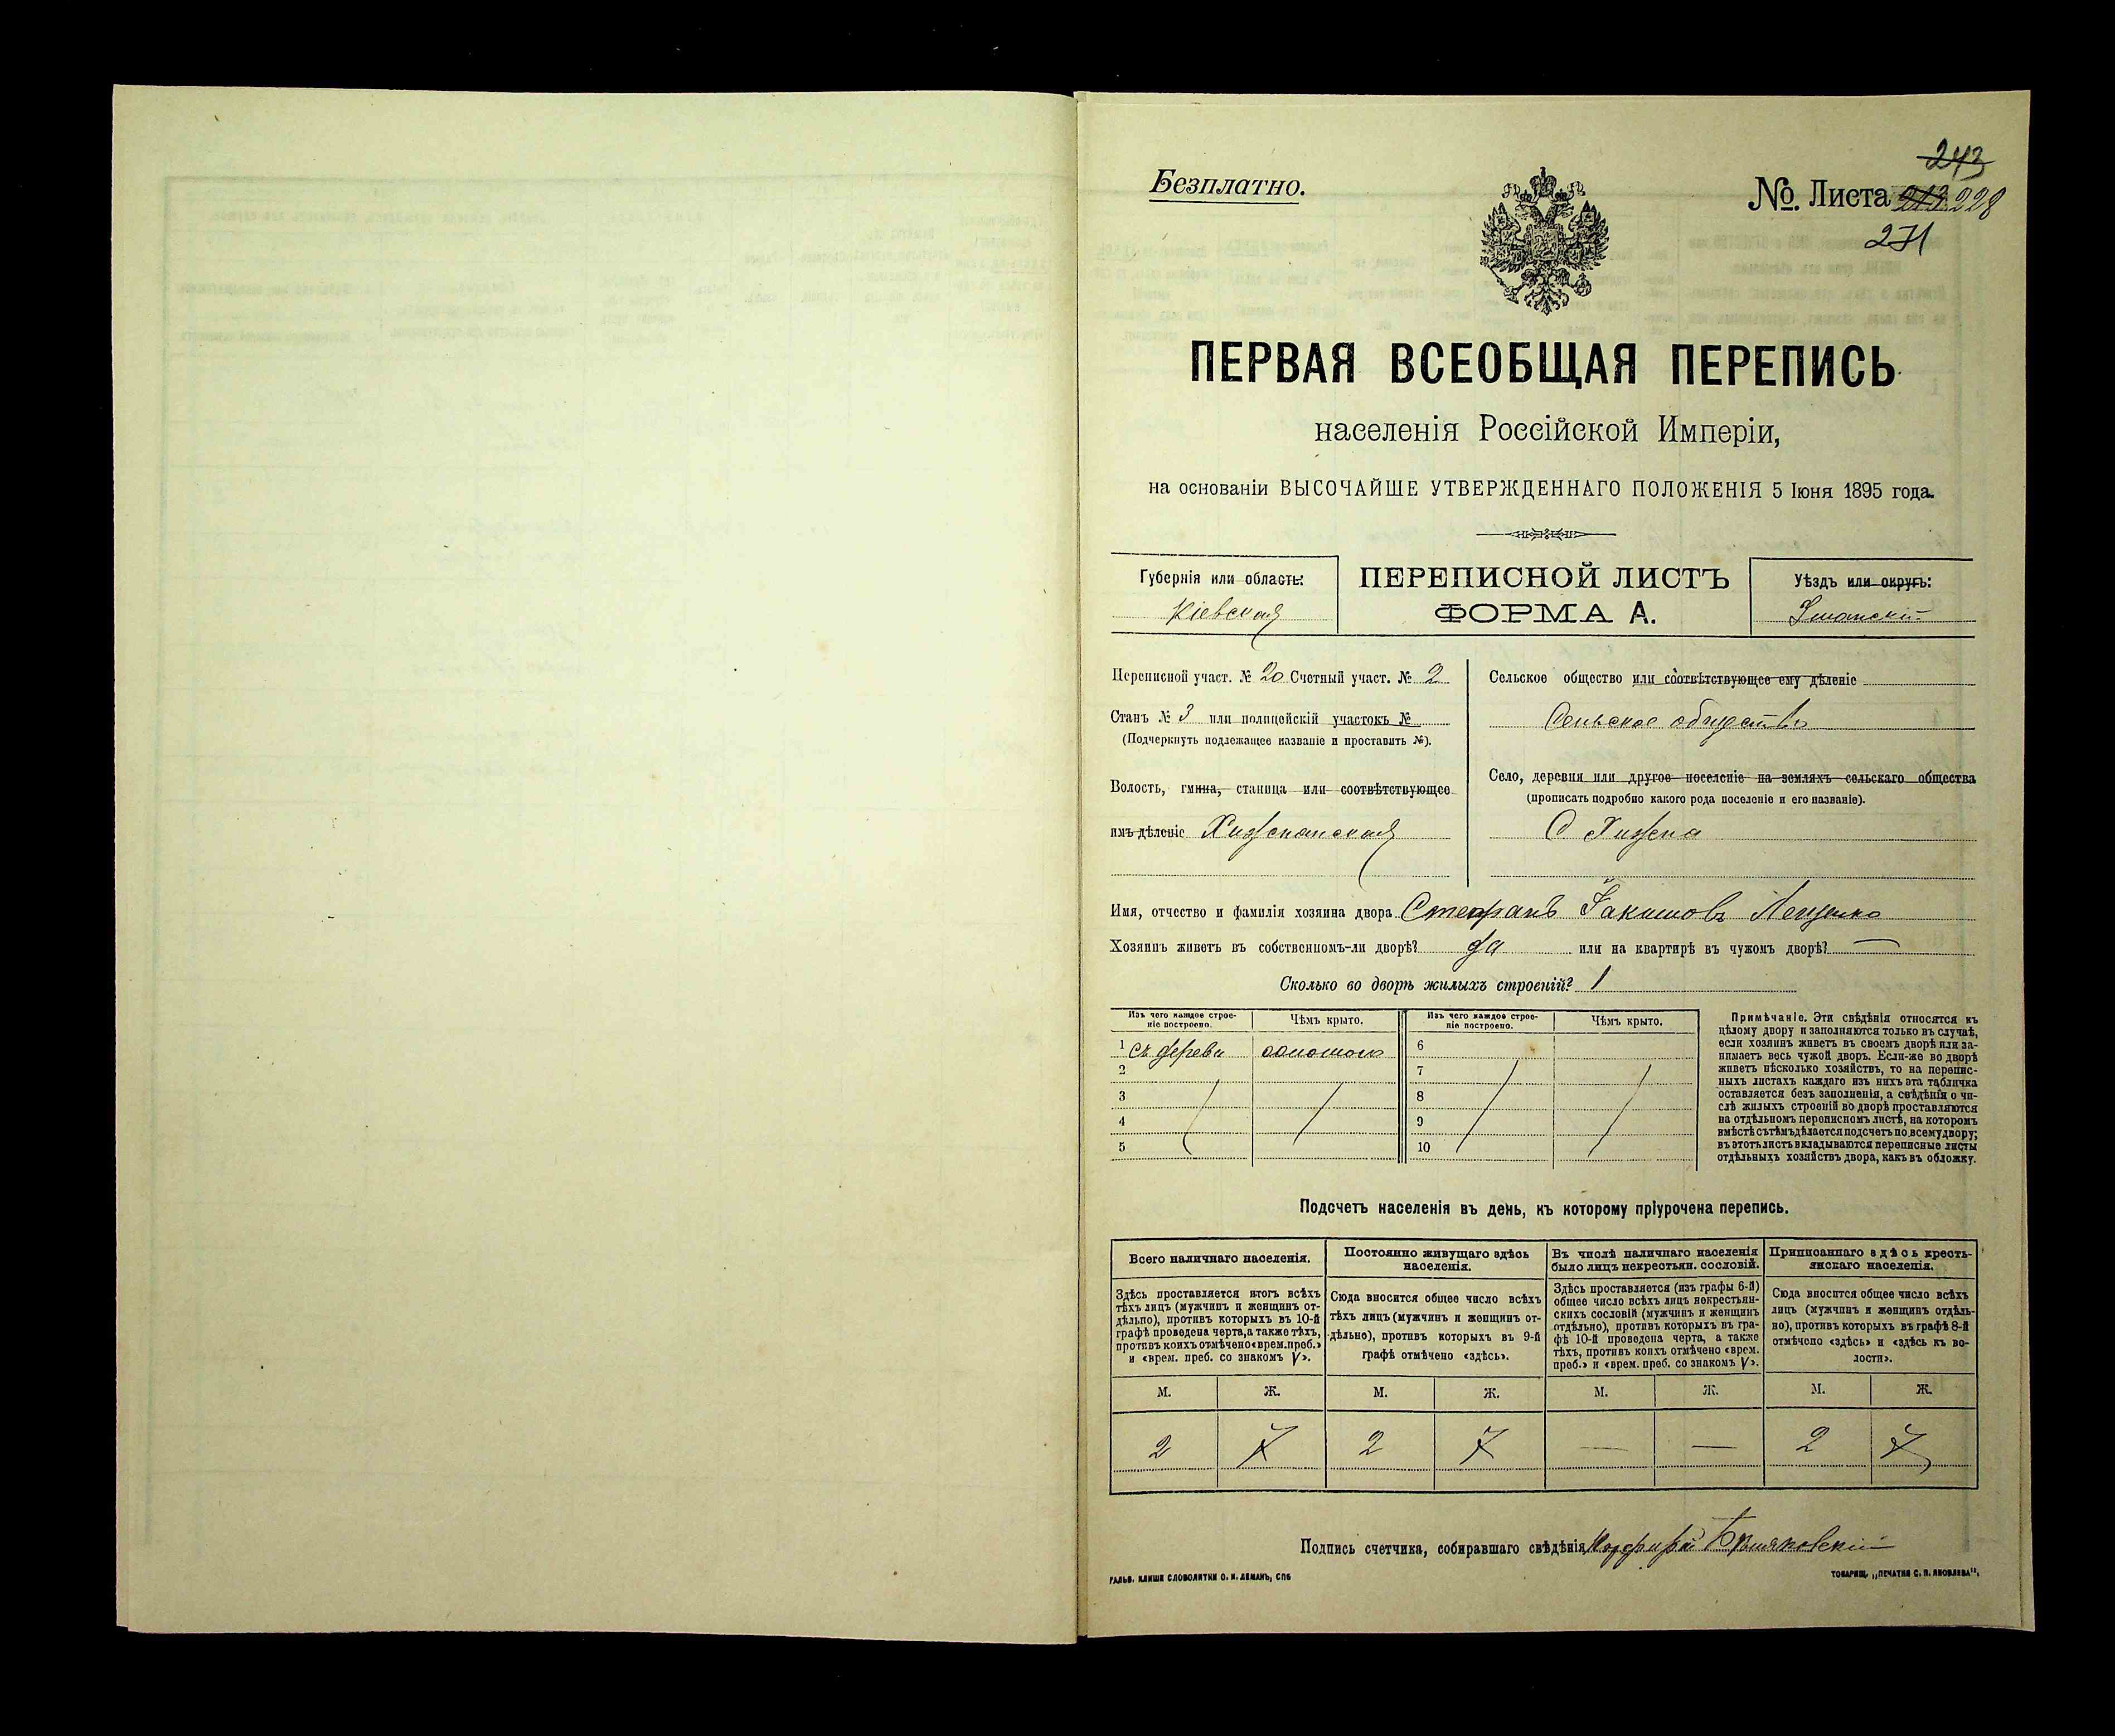 243
Безплатно.
№. Листа 213 228
271
ПЕРВАЯ ВСЕОБЩАЯ ПЕРЕПИСЬ
населенія Россійской Имперіи,
на основаніи ВЫСОЧАЙШЕ УТВЕРЖДЕННАГО ПОЛОЖЕНІЯ 5 Іюня 1895 года.
Губернія или область:
Кіевская
ПЕРЕПИСНОЙ ЛИСТЪ
ФОРМА А.
Уѣздъ или округъ:
Уманскій
Переписной участ. № 20 Счетный участ. № 2
Станъ № 3 или полицейскій участокъ №
(Подчеркнуть подлежащее названіе и проставить №).
Волость, гмина, станица или соотвѣтствующее
имъ дѣленіе Хижнянская
Сельское общество или соотвѣтствующее ему дѣленіе
Сельское общество
Село, деревня или другое поселеніе на земляхъ сельскаго общества
(прописать подробно какого рода поселеніе и его названіе).
С Хижна
Имя, отчество и фамилія хозяина двора Стефанъ Іакимовъ Лещенко
Хозяинъ живетъ въ собственномъ-ли дворѣ? да или на квартирѣ въ чужомъ дворѣ? —
Сколько во дворѣ жилыхъ строеній? 1
Изъ чего каждое строе-
ніе построено.
Чѣмъ крыто.
Изъ чего каждое строе-
ніе построено.
Чѣмъ крыто.
1 съ дерева соломою 6
2 7
3 8
4 9
5 10
Примѣчаніе. Эти свѣдѣнія относятся къ
цѣлому двору и заполняются только въ случаѣ,
если хозяинъ живетъ въ своемъ дворѣ или за-
нимаетъ весь чужой дворъ. Если-же во дворѣ
живетъ нѣсколько хозяйствъ, то на перепис-
ныхъ листахъ каждаго изъ нихъ эта табличка
оставляется безъ заполненія, а свѣдѣнія о чи-
слѣ жилыхъ строеній во дворѣ проставляются
на отдѣльномъ переписномъ листѣ, на которомъ
вмѣстѣ съ тѣмъ дѣлается подсчетъ по всему двору;
въ этотъ листъ вкладываются переписные листы
отдѣльныхъ хозяйствъ двора, какъ въ обложку.
Подсчетъ населенія въ день, къ которому пріурочена перепись.
Всего наличнаго населенія.
Здѣсь проставляется итогъ всѣхъ
тѣхъ лицъ (мужчинъ и женщинъ от-
дѣльно), противъ которыхъ въ 10-й
графѣ проведена черта, а также тѣхъ,
противъ коихъ отмѣчено «врем. преб.»
и «врем. преб. со знакомъ V».
Постоянно живущаго здѣсь
населенія.
Сюда вносится общее число всѣхъ
тѣхъ лицъ (мужчинъ и женщинъ от-
дѣльно), противъ которыхъ въ 9-й
графѣ отмѣчено «здѣсь».
Въ числѣ наличнаго населенія
было лицъ некрестьян. сословій.
Здѣсь проставляется (изъ графы 6-й)
общее число всѣхъ лицъ некрестьян-
скихъ сословій (мужчинъ и женщинъ
отдѣльно), противъ которыхъ въ гра-
фѣ 10-й проведена черта, а также
тѣхъ, противъ коихъ отмѣчено «врем.
преб.» и «врем. преб. со знакомъ V».
Приписаннаго здѣсь кресть-
янскаго населенія.
Сюда вносится общее число всѣхъ
лицъ (мужчинъ и женщинъ отдѣль-
но), противъ которыхъ въ графѣ 8-й
отмѣчено «здѣсь» и «здѣсь къ во-
лости».
М. Ж. М. Ж. М. Ж. М. Ж.
2 7 2 7 — — 2 7
Подпись счетчика, собиравшаго свѣдѣнія Порфирій
ГАЛЬВ. КЛИШЕ СЛОВОЛИТНИ О. И. ЛЕМАНЪ, СПБ
ТОВАРИЩ. „ПЕЧАТНЯ С. П. ЯКОВЛЕВА".